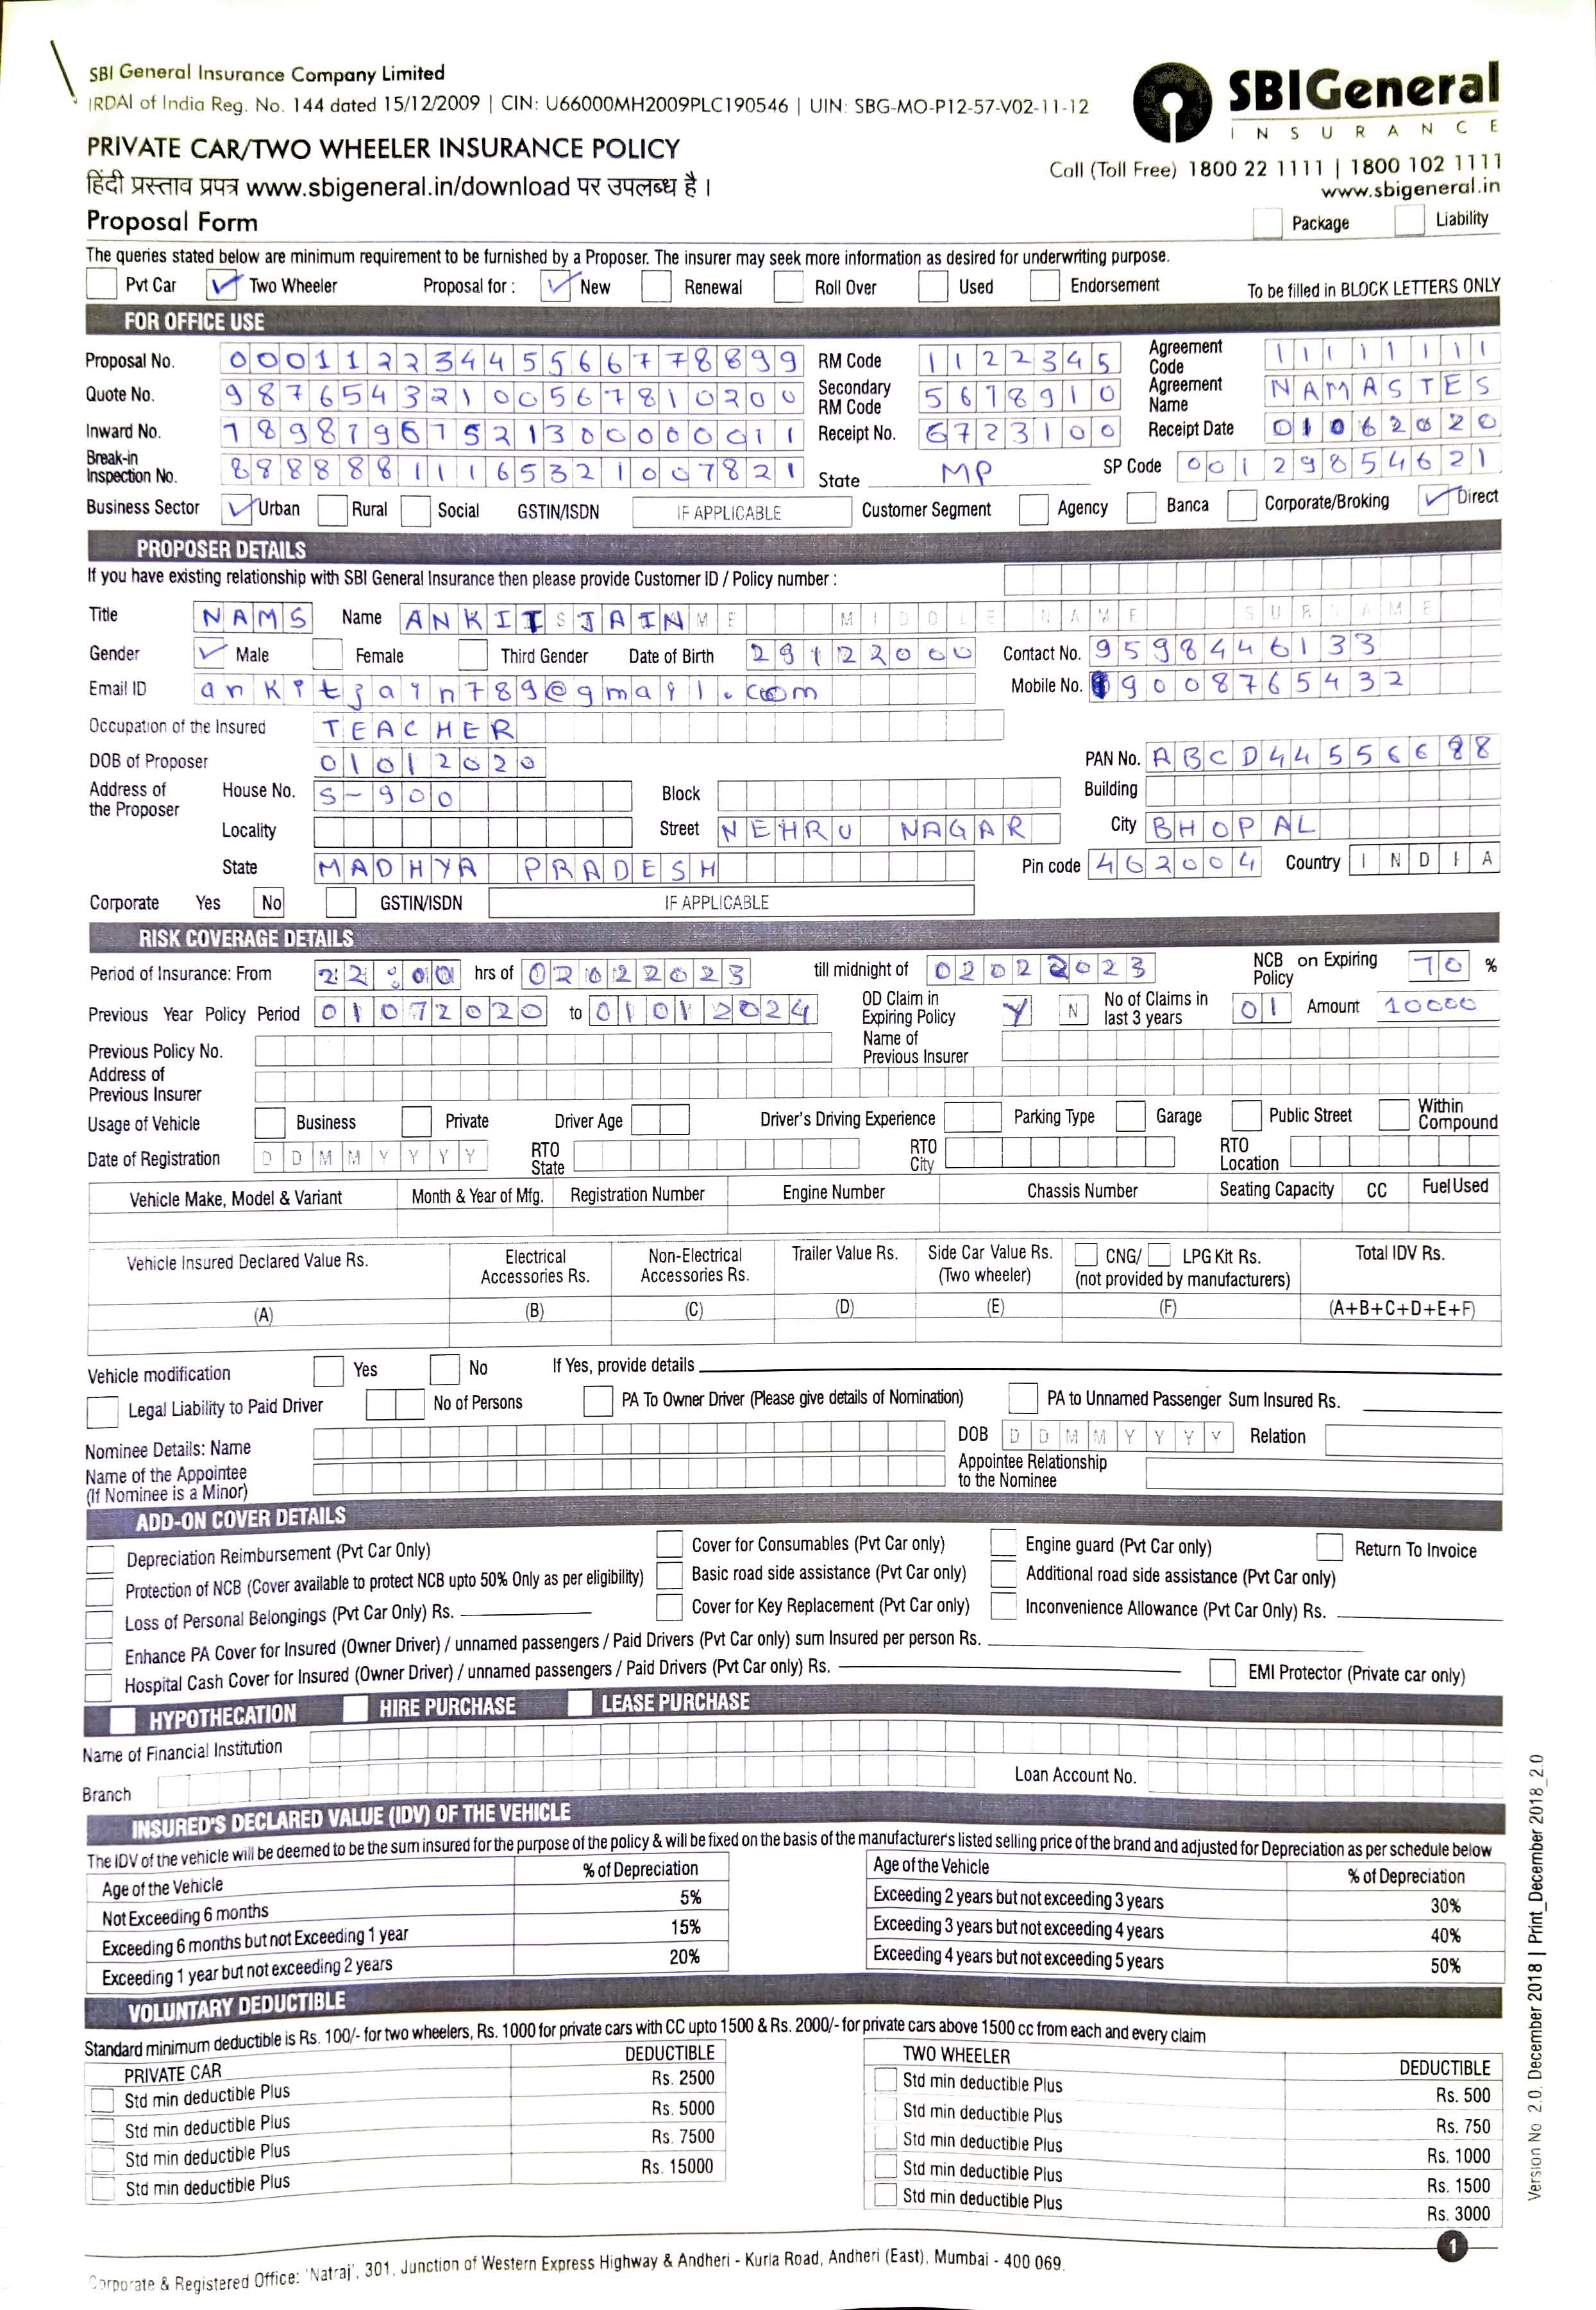 SBI General Insurance Company Limited
IRDAI of India Reg. No. 144 dated 15/12/2009 | CIN: U66000MH2009PLC190546 | UIN: SBG-MO-P12-57-V02-11-12
SBIGeneral
INSURANCE
PRIVATE CAR/TWO WHEELER INSURANCE POLICY
Call (Toll Free) 1800 22 1111 | 1800 102 1111
हिंदी प्रस्ताव प्रपत्र www.sbigeneral.in/download पर उपलब्ध है।
www.sbigeneral.in
Proposal Form Package Liability
The queries stated below are minimum requirement to be furnished by a Proposer. The insurer may seek more information as desired for underwriting purpose.
Pvt Car Two Wheeler Proposal for : New Renewal Roll Over Used Endorsement To be filled in BLOCK LETTERS ONLY
FOR OFFICE USE
Proposal No. 00011223445566778899 RM Code 1122345 Agreement Code 11111111
Quote No. 98765432100567810200 Secondary RM Code 5678910 Agreement Name NAMASTES
Inward No. 78987967521300000011 Receipt No. 6723100 Receipt Date 01062020
Break-in Inspection No. 88888811165321007821 State MP SP Code 00129854621
Business Sector Urban Rural Social GSTIN/ISDN IF APPLICABLE Customer Segment Agency Banca Corporate/Broking Direct
PROPOSER DETAILS
If you have existing relationship with SBI General Insurance then please provide Customer ID / Policy number :
Title NAMS Name ANKIT JAIN ME MIDDLE NAME SURNAME
Gender Male Female Third Gender Date of Birth 29122000 Contact No. 9598446133
Email ID ankitjain789@gmail.com Mobile No. 9008765432
Occupation of the Insured TEACHER
DOB of Proposer 01012020 PAN No. ABCD44556688
Address of the Proposer House No. S-900 Block Building
Locality Street NEHRU NAGAR City BHOPAL
State MADHYA PRADESH Pin code 462004 Country INDIA
Corporate Yes No GSTIN/ISDN IF APPLICABLE
RISK COVERAGE DETAILS
Period of Insurance: From 22:00 hrs of 02022023 till midnight of 02022023 NCB on Expiring Policy 70 %
Previous Year Policy Period 01072020 to 01012024 OD Claim in Expiring Policy Y N No of Claims in last 3 years 01 Amount 10000
Previous Policy No. Name of Previous Insurer
Address of Previous Insurer
Usage of Vehicle Business Private Driver Age Driver's Driving Experience Parking Type Garage Public Street Within Compound
Date of Registration D D M M Y Y Y Y RTO State RTO City RTO Location
Vehicle Make, Model & Variant Month & Year of Mfg. Registration Number Engine Number Chassis Number Seating Capacity CC Fuel Used
Vehicle Insured Declared Value Rs. Electrical Accessories Rs. Non-Electrical Accessories Rs. Trailer Value Rs. Side Car Value Rs. (Two wheeler) CNG/ LPG Kit Rs. (not provided by manufacturers) Total IDV Rs.
(A) (B) (C) (D) (E) (F) (A+B+C+D+E+F)
Vehicle modification Yes No If Yes, provide details
Legal Liability to Paid Driver No of Persons PA To Owner Driver (Please give details of Nomination) PA to Unnamed Passenger Sum Insured Rs.
Nominee Details: Name DOB D D M M Y Y Y Y Relation
Name of the Appointee (If Nominee is a Minor) Appointee Relationship to the Nominee
ADD-ON COVER DETAILS
Depreciation Reimbursement (Pvt Car Only) Cover for Consumables (Pvt Car only) Engine guard (Pvt Car only) Return To Invoice
Protection of NCB (Cover available to protect NCB upto 50% Only as per eligibility) Basic road side assistance (Pvt Car only) Additional road side assistance (Pvt Car only)
Loss of Personal Belongings (Pvt Car Only) Rs. Cover for Key Replacement (Pvt Car only) Inconvenience Allowance (Pvt Car Only) Rs.
Enhance PA Cover for Insured (Owner Driver) / unnamed passengers / Paid Drivers (Pvt Car only) sum Insured per person Rs.
Hospital Cash Cover for Insured (Owner Driver) / unnamed passengers / Paid Drivers (Pvt Car only) Rs. EMI Protector (Private car only)
HYPOTHECATION HIRE PURCHASE LEASE PURCHASE
Name of Financial Institution
Branch Loan Account No.
INSURED'S DECLARED VALUE (IDV) OF THE VEHICLE
The IDV of the vehicle will be deemed to be the sum insured for the purpose of the policy & will be fixed on the basis of the manufacturer's listed selling price of the brand and adjusted for Depreciation as per schedule below
Age of the Vehicle % of Depreciation Age of the Vehicle % of Depreciation
Not Exceeding 6 months 5% Exceeding 2 years but not exceeding 3 years 30%
Exceeding 6 months but not Exceeding 1 year 15% Exceeding 3 years but not exceeding 4 years 40%
Exceeding 1 year but not exceeding 2 years 20% Exceeding 4 years but not exceeding 5 years 50%
VOLUNTARY DEDUCTIBLE
Standard minimum deductible is Rs. 100/- for two wheelers, Rs. 1000 for private cars with CC upto 1500 & Rs. 2000/- for private cars above 1500 cc from each and every claim
PRIVATE CAR DEDUCTIBLE TWO WHEELER DEDUCTIBLE
Std min deductible Plus Rs. 2500 Std min deductible Plus Rs. 500
Std min deductible Plus Rs. 5000 Std min deductible Plus Rs. 750
Std min deductible Plus Rs. 7500 Std min deductible Plus Rs. 1000
Std min deductible Plus Rs. 15000 Std min deductible Plus Rs. 1500
Std min deductible Plus Rs. 3000
1
Corporate & Registered Office: 'Natraj', 301, Junction of Western Express Highway & Andheri - Kurla Road, Andheri (East), Mumbai - 400 069.
Version No 2.0. December 2018 | Print_December 2018_2.0